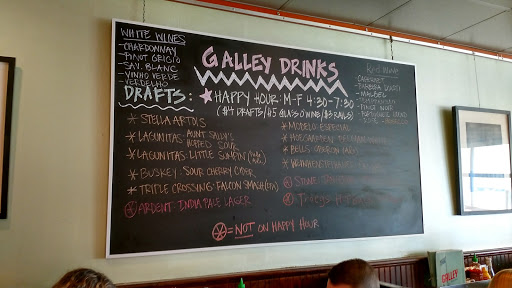 WHITE WINES
-CHARDONNAY
-PINOT GRIGIO
-SAV. BLANC
-VINHO VERDE
-VERDELHO
GALLEY DRINKS
HAPPY HOUR: M-F 4:30-7:30
($4 DRAFTS/$5 GLASS O'WINE/$3 RAILS)
RED WINE
-CABERNET
-MALBEC
-PINOT NOIR
DRAFTS:
* STELLA ARTOIS
* LAGUNITAS: AUNT SALLY'S
HOPPED SOUR
* LAGUNITAS: LITTLE SUMPIN'
* BUSKEY: SOUR CHERRY CIDER
* TRIPLE CROSSING: FALCON SMASH
ARDENT: INDIA PALE LAGER
* MODELO ESPECIAL
* HOEGAARDEN
* BELLS: OBERON
* WEIHENSTEPHANER
STONE:
= NOT ON HAPPY HOUR
GALLEY